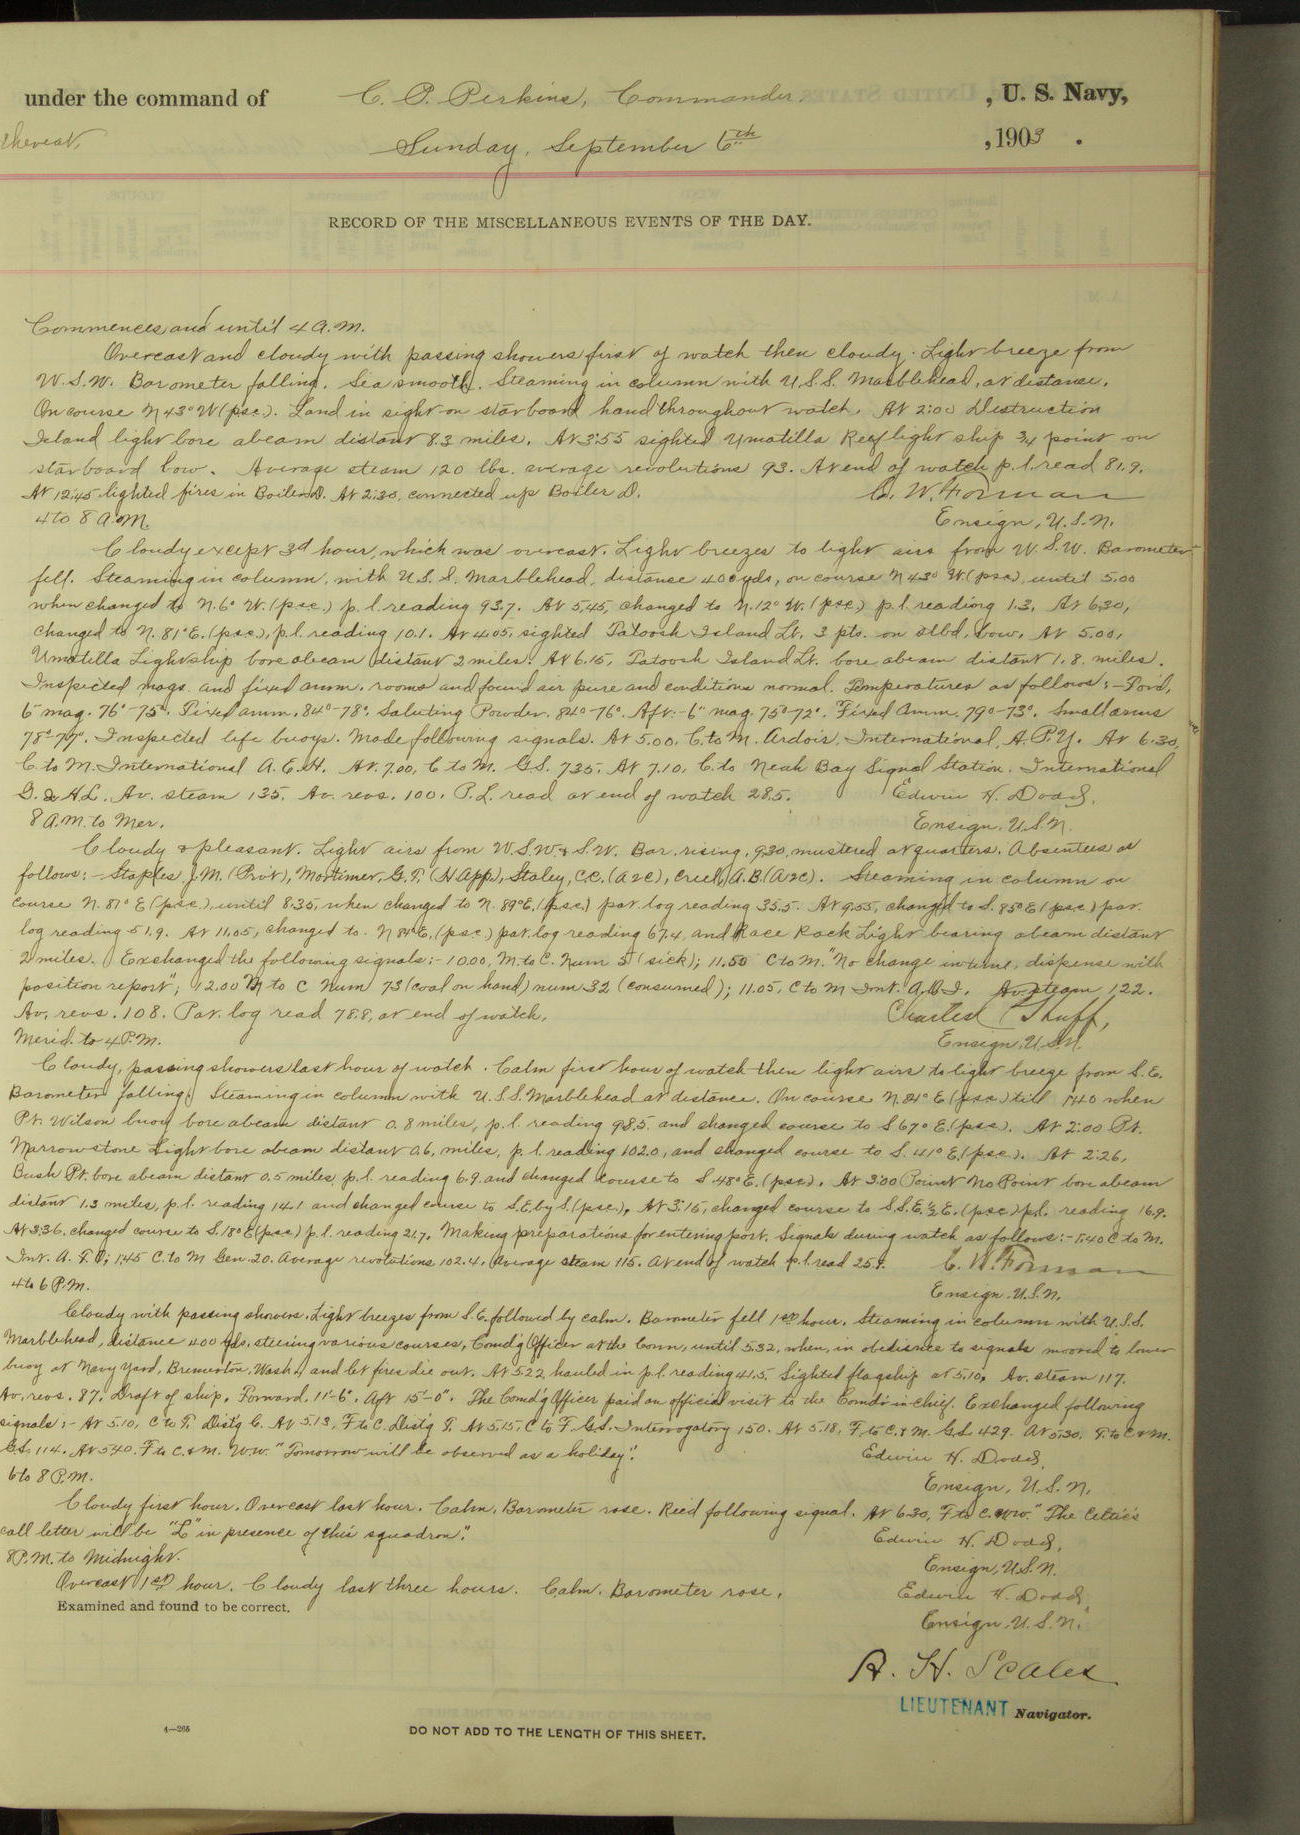 under the command of C. P. Perkins, Commander, U. S. Navy,
thereat, Sunday, September 6th, 1903.
RECORD OF THE MISCELLANEOUS EVENTS OF THE DAY.
Commences and until 4 A.M.
Overcast and cloudy with passing showers first of watch then cloudy. Light breeze from
W.S.W. Barometer falling. Sea smooth. Steaming in column with U.S.S. Marblehead, at distance.
On course N 43° W (psc). Land in sight on starboard hand throughout watch. At 2:00 Destruction
Island light bore abeam distant 8.3 miles. At 3:55 sighted Umatilla Reef light ship 3/4 point on
starboard bow. Average steam 120 lbs. average revolutions 93. At end of watch p.l. read 81.9.
At 12:45 lighted fires in Boiler D. At 2:30, connected up Boiler D. C. W. Forman
4 to 8 A.M. Ensign, U.S.N.
Cloudy except 3d hour, which was overcast. Light breezes to light airs from W.S.W. Barometer
fell. Steaming in column, with U.S.S. Marblehead, distance 400 yds, on course N 43° W. (psc), until 5.00
when changed to N. 6° W. (psc.) p.l. reading 93.7. At 5.45, changed to N. 12° W. (psc.) p.l. reading 1.3. At 6.30,
changed to N. 81° E. (psc.), p.l. reading 10.1. At 4.05, sighted Tatoosh Island Lt. 3 pts. on stbd. bow. At 5.00,
Umatilla Lightship bore abeam distant 2 miles. At 6.15, Tatoosh Island Lt. bore abeam distant 1.8 miles.
Inspected mags. and fixed amm. rooms and found air pure and conditions normal. Temperatures as follows:- For'd,
6" mag. 76°-75°. Fixed amm. 84°-78°. Saluting Powder. 84°-76°. Aft.- 6" mag. 75°-72°. Fixed Amm. 79°-73°. Small arms
78°-77°. Inspected life buoys. Made following signals. At 5.00, C. to M. Ardois, International, A.P.Y. At 6.30,
C. to M. International A.E.H. At 7.00, C to M. G.S. 735. At 7.10, C. to Neah Bay Signal Station. International
G. & H.L. Av. steam 135. Av. revs. 100. P.L. read at end of watch 28.5. Edwin H. Dodd,
8 A.M. to Mer. Ensign, U.S.N.
Cloudy & pleasant. Light airs from W.S.W. & S.W. Bar. rising. 9.30, mustered at quarters. Absentees as
follows:- Staples J.M. (Prvt), Mortimer, G.F. (H App), Staley, C.C. (A2C), Creel, A.B. (A2C). Steaming in column on
course N. 81° E (psc.) until 8.35, when changed to N. 89° E. (psc.) pat. log reading 35.5. At 9.55, changed to S. 85° E (psc.) pat.
log reading 51.9. At 11.05, changed to N 84° E. (psc.) pat. log reading 67.4, and Race Rock Light bearing abeam distant
2 miles. Exchanged the following signals:- 10.00, M. to C. Num 5 (sick); 11.50 C to M. "No change in time, dispense with
position report"; 12.00 M to C Num 73 (coal on hand) num 32 (consumed); 11.05, C to M Int. Av. steam 122.
Av. revs. 108. Pat. log read 78.8, at end of watch. Charles T Shuff,
Merid. to 4 P.M. Ensign, U.S.N.
Cloudy, passing showers last hour of watch. Calm first hour of watch then light airs to light breeze from S.E.
Barometer falling. Steaming in column with U.S.S. Marblehead at distance. On course N. 84° E (psc.) till 1:40 when
Pt. Wilson buoy bore abeam distant 0.8 miles, p.l. reading 98.5 and changed course to S 67° E. (psc). At 2:00 Pt.
Marrowstone Light bore abeam distant 0.6, miles, p.l. reading 102.0, and changed course to S. 41° E. (psc.). At 2:26,
Bush Pt. bore abeam distant 0.5 miles, p.l. reading 6.9 and changed course to S. 48° E. (psc). At 3:00 Point No Point bore abeam
distant 1.3 miles, p.l. reading 14.1 and changed course to S.E. by S. (psc.). At 3:15, changed course to S.S.E. ½ E. (psc) p.l. reading 16.9.
At 3:36, changed course to S. 18° E (psc) p.l. reading 21.7. Making preparations for entering port. Signals during watch as follows:- 1:40 C to M.
Int. A. F. 1:45 C. to M Gen. 20. Average revolutions 102.4. Average steam 115. At end of watch p.l. read 25.9. C. W. Forman
4 to 6 P.M. Ensign. U.S.N.
Cloudy with passing showers. Light breezes from S.E. followed by calm. Barometer fell 1st hour. Steaming in column with U.S.S.
Marblehead, distance 400 yds, steering various courses, Comd'g Officer at the Conn, until 5.32, when, in obedience to signals moored to lower
buoy at Navy Yard, Bremerton, Wash., and let fires die out. At 5.22 hauled in p.l. reading 41.5. Sighted flagship at 5.10. Av. steam 117.
Av. revs. 87. Draft of ship. Forward, 11'-6". Aft 15'-0". The Comd'g Officer paid an official visit to the Comd'r-in-chief. Exchanged following
signals:- At 5.10, C to F. Dist'g C. At 5.13, F to C. Dist'g F. At 5.15, C to F. G.S. Interrogatory 150. At 5.18, F. to C. & M. G.S. 429. At 5.30, F. to C & M.
G.S. 114. At 5.40, F. to C. & M. W.W. "Tomorrow will be observed as a holiday". Edwin H. Dodd,
6 to 8 P.M. Ensign, U.S.N.
Cloudy first hour. Overcast last hour. Calm. Barometer rose. Rec'd following signal. At 6.30, F to C. W.W. "The Celtic's
call letter will be "L" in presence of this squadron". Edwin H. Dodd,
8 P.M. to Midnight. Ensign, U.S.N.
Overcast 1st hour. Cloudy last three hours. Calm. Barometer rose. Edwin H. Dodd,
Examined and found to be correct. Ensign, U.S.N.
A. H. Scales
LIEUTENANT Navigator.
4—265
DO NOT ADD TO THE LENGTH OF THIS SHEET.